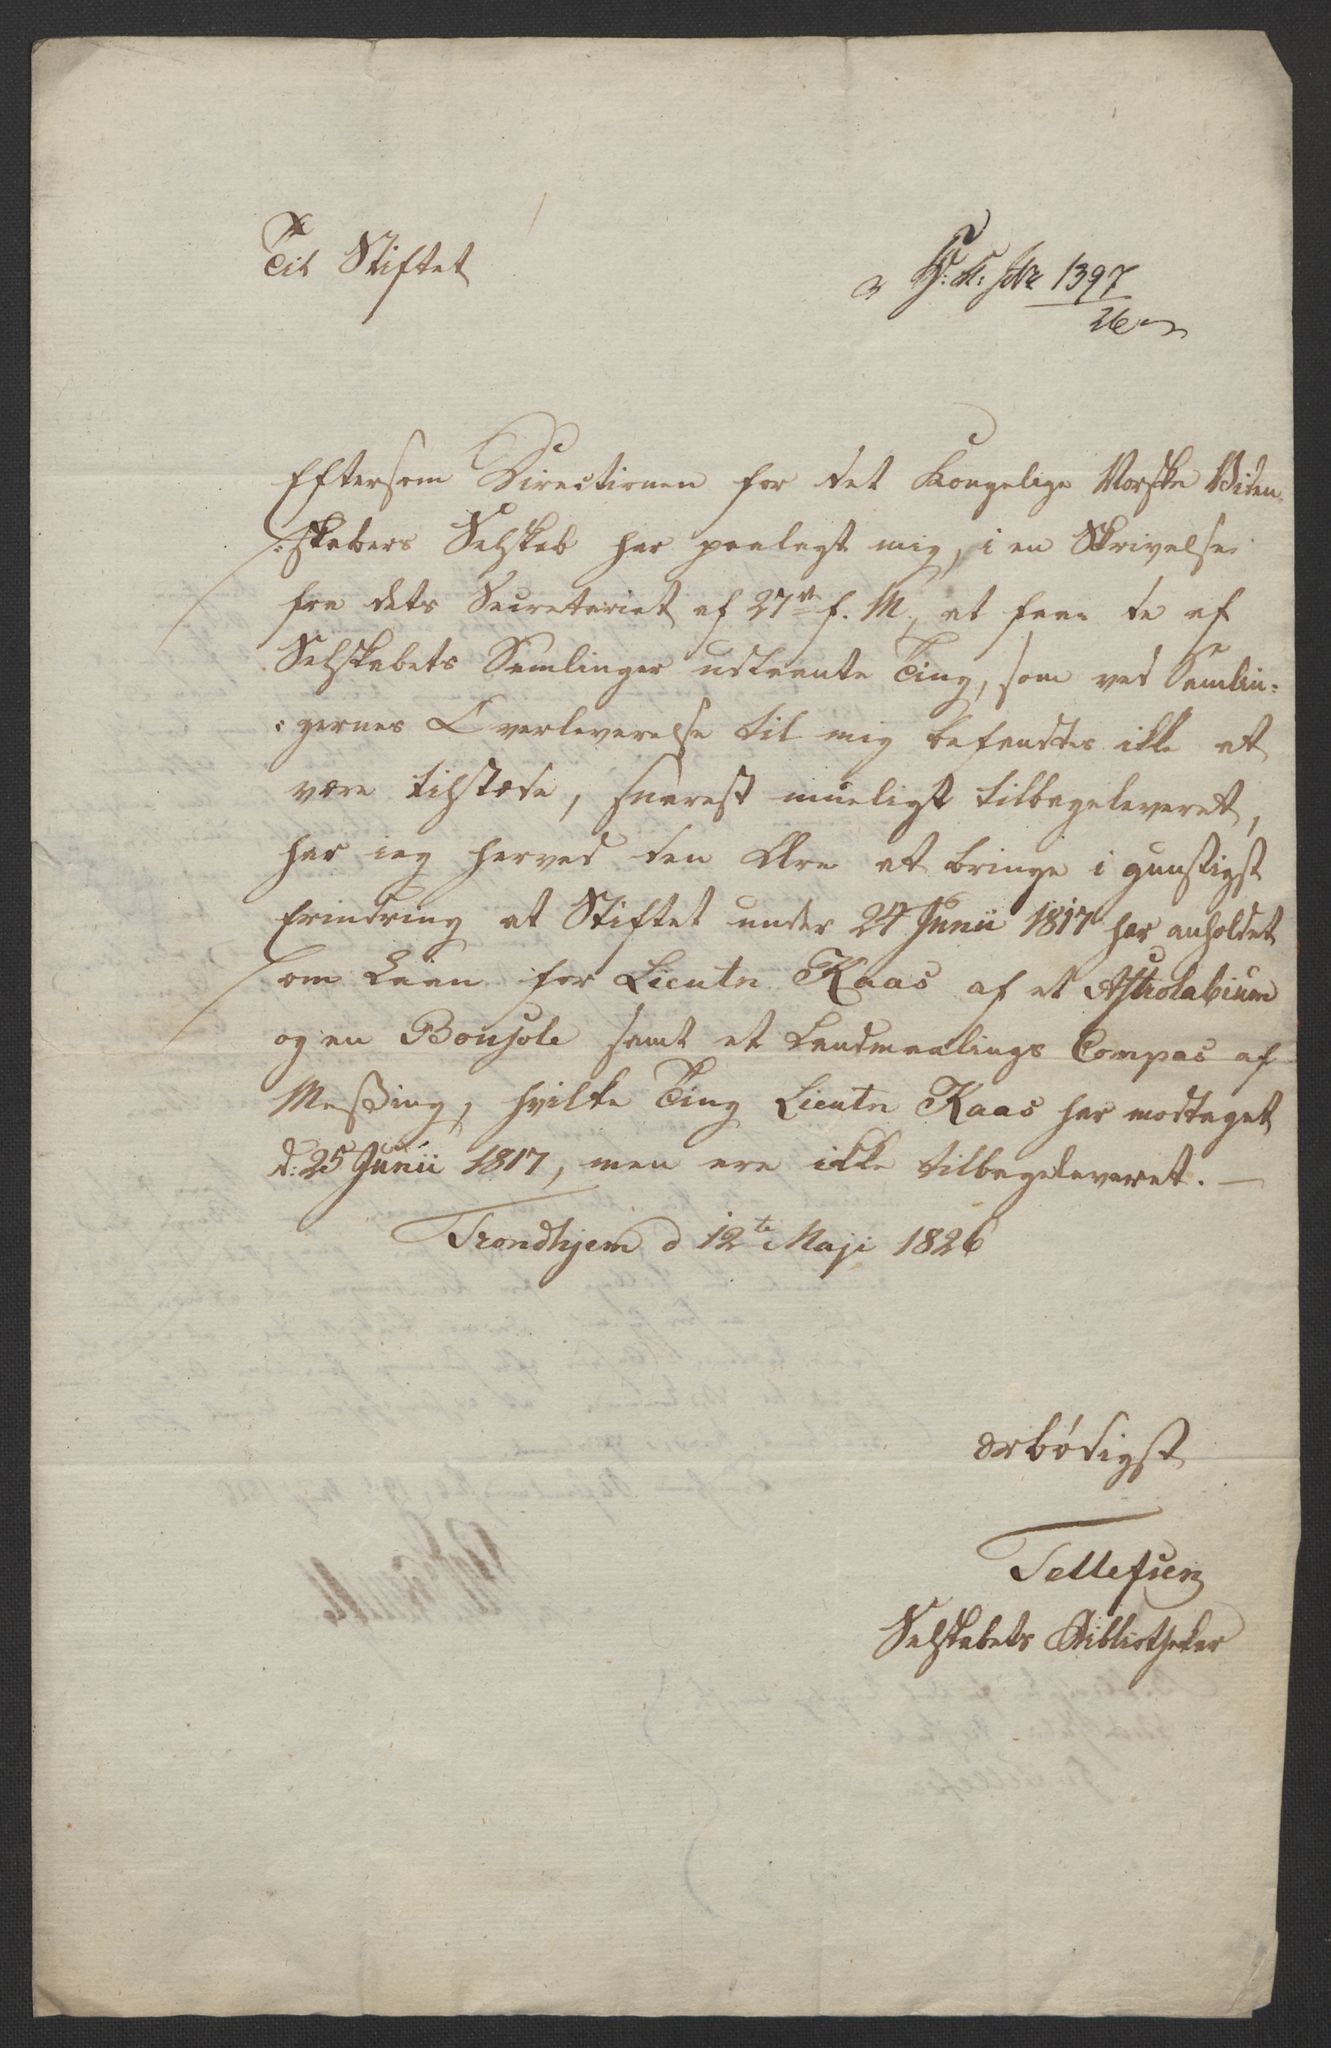 Til Stiftet
No 1397
26
Eftersom Directionen for det Kongelige Norske Viden-
:skabers Selskab har paalagt mig, i en Skrivelse
fra dets Secretariat af 27de f. M., at faae de af
Selskabets Samlinger udlaante Ting, som ved Samlin:
:gernes Overleverelse til mig befandtes ikke at
være tilstæde, snarest mueligt tilbageleveret,
har ieg herved den Ære at bringe i gunstigst
Erindring at Stiftet under 24 Junii 1817 har anholdet
om Laan for Lieutn Kaas af et Astrolabium
og en Bousole samt et Landmaalings Compas af
Meßing, hvilke Ting Lieutn Kaas har modtaget
d: 25 Junii 1817, men ere ikke tilbageleveret. —
Trondhjem d 12te Maji 1826
ærbødigst
Tellefsen
Selskabets Bibliothekar